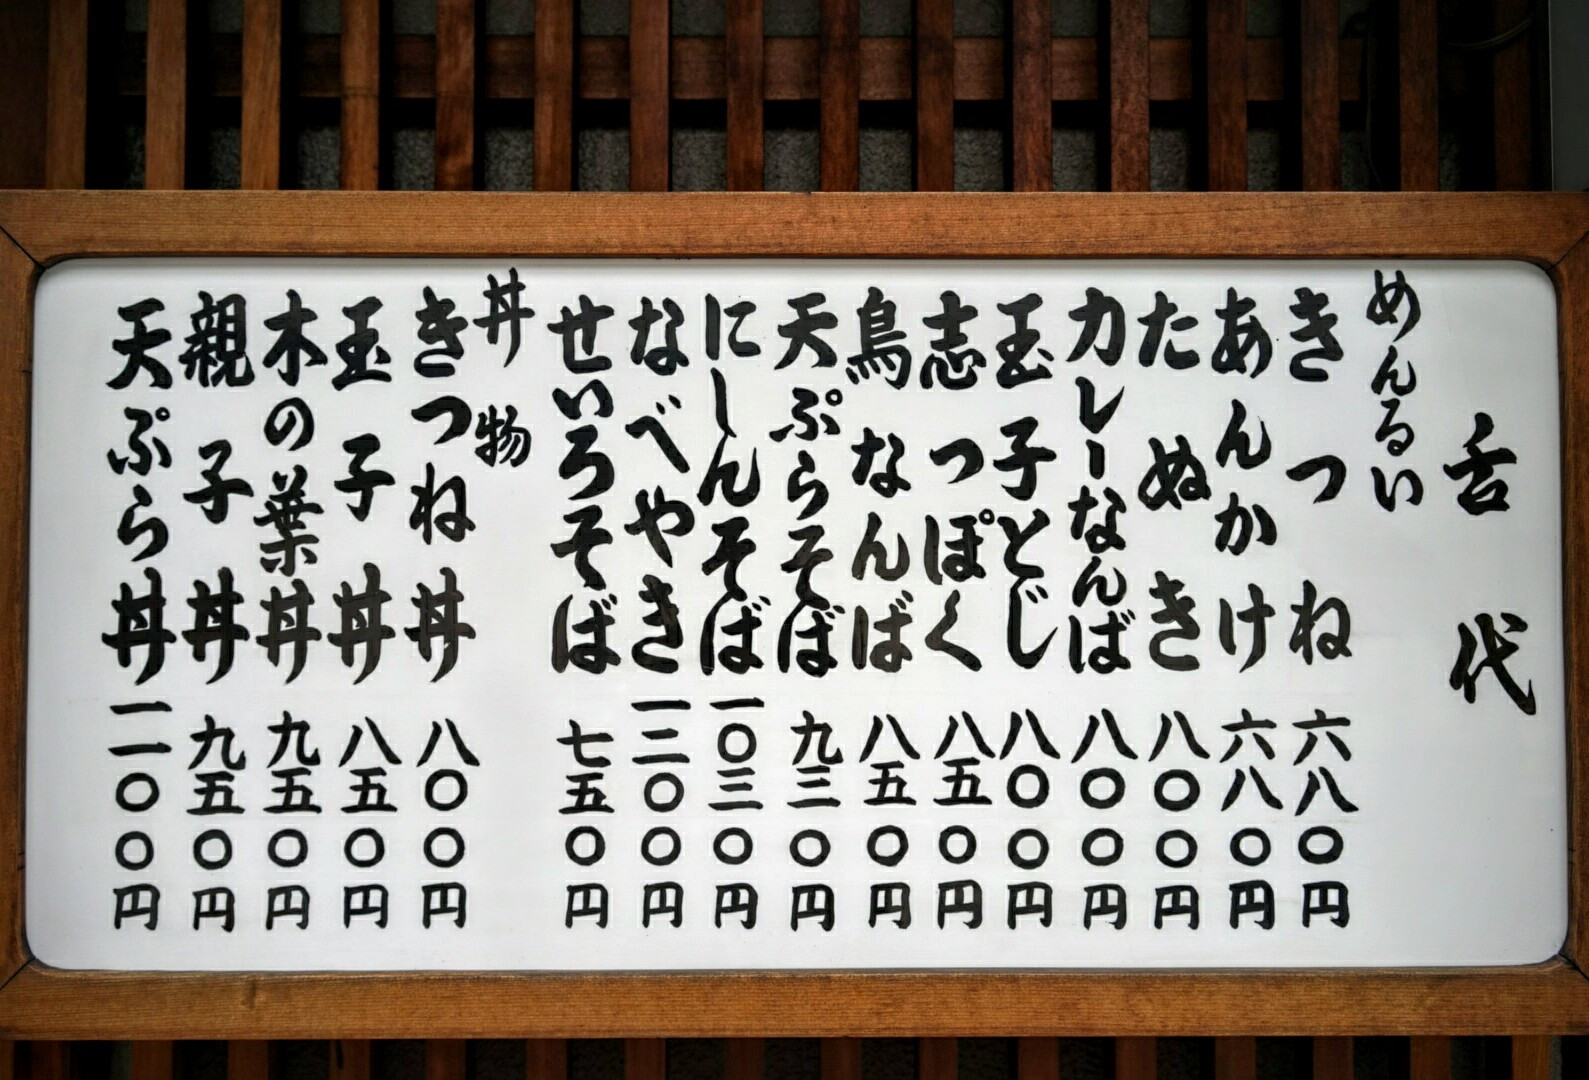 舌代
めんるい
きつね 六八〇円
あんかけ 六八〇円
たぬき 八〇〇円
カレーなんば 八〇〇円
玉子とじ 八〇〇円
志っぽく 八五〇円
鳥なんば 八五〇円
天ぷらそば 九三〇円
にしんそば 一〇三〇円
なべやき 一二〇〇円
せいろそば 七五〇円
丼物
きつね丼 八〇〇円
玉子丼 八五〇円
木の葉丼 九五〇円
親子丼 九五〇円
天ぷら丼 一一〇〇円